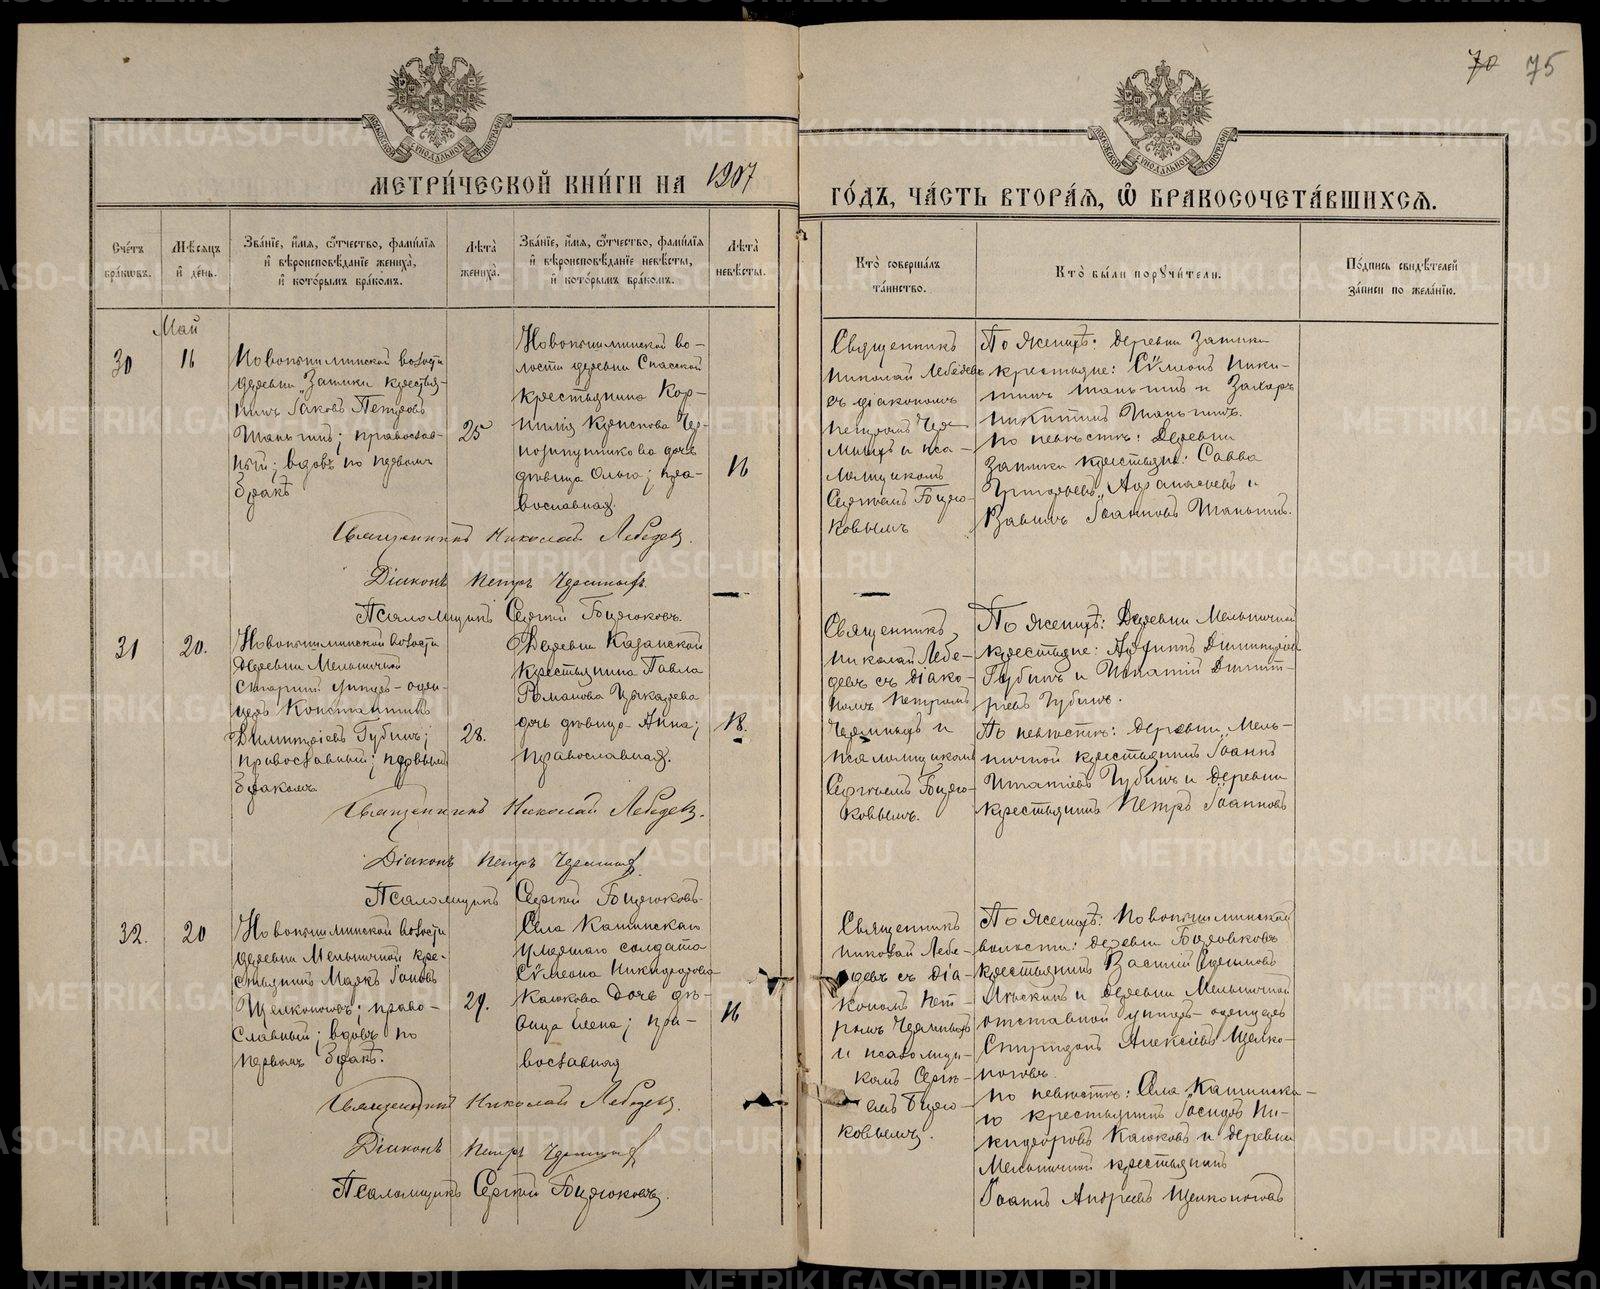 70 75
МЕТРИ́ЧЕСКОЙ КНИ́ГИ НА 1907
ГО́ДЪ, ЧА́СТЬ ВТОРА́Я, Ѡ БРАКОСОЧЕТА́ВШИХСЯ.
Сче́тъ бра́кѡвъ.
Мѣ́сяцъ и де́нь.
Зва́нїе, и́мя, ѻ҆́тчество, фами́лїя и вѣроисповѣ́данїе жениха̀, и кото́рымъ бра́комъ.
Лѣта̀ жениха̀.
Зва́нїе, и́мя, ѻ҆́тчество, фами́лїя и вѣроисповѣ́данїе невѣ́сты, и кото́рымъ бра́комъ.
Лѣта̀ невѣ́сты.
Кто̀ соверша́лъ та́инство.
Кто̀ бы́ли порꙋчи́тели.
По́дпись свидѣ́телей за́писи по жела́нїю.
Май
30
16
Новопышминской волости
деревни Замики крестья-
нинъ Іаковъ Петровъ
Шаныгинъ; православ-
ный; вдовъ по первомъ
бракѣ
25
Новопышминской во-
лости деревни Спасской
крестьянина Кор-
нилія Крискова Чер-
дѣвица Ольга; пра-
вославная.
16
Священникъ
Николай Лебедевъ
съ діакономъ
Петромъ Чере-
и пса-
ломщикомъ
Сергіемъ Бирю-
ковымъ
По женихѣ: деревни Замики
крестьяне: Сѵмеонъ Ники-
тинъ Шаныгинъ и Захаръ
Никитинъ Шаныгинъ.
По невѣстѣ: Деревни
Замики крестьяне: Савва
Григорьевъ Афанасьевъ и
Іоанновъ Шаныгинъ.
Священникъ Николай Лебедевъ.
Діаконъ Петръ
Псаломщикъ Сергій Бирюковъ.
31
20.
Новопышминской волости
деревни Мельничной
старшій унтеръ-офи-
церъ Константинъ
Димитріевъ Губинъ;
православный; первымъ
бракомъ
28.
Деревни Казанской
крестьянина Павла
Романова
дочь дѣвица Анна;
православная.
18.
Священникъ
Николай Лебе-
девъ съ діако-
номъ Петромъ
и
псаломщикомъ
Сергіемъ Бирю-
ковымъ.
По женихѣ: Деревни Мельничной
крестьяне: Димитріевъ
Губинъ и Игнатій Димит-
ріевъ Губинъ.
По невѣстѣ: деревни Мель-
ничной крестьянинъ Іоаннъ
Игнатіевъ Губинъ и деревни
крестьянинъ Петръ Іоанновъ
Священникъ Николай Лебедевъ.
Діаконъ Петръ
Псаломщикъ Сергій Бирюковъ.
32.
20
Новопышминской волости
деревни Мельничной кре-
стьянинъ Маркъ Іоновъ
Щелконоговъ; право-
славный; вдовъ по
первомъ бракѣ.
29.
Села Кашинскаго
умершаго солдата
Сѵмеона Никифорова
Каюкова дочь дѣ-
вица Елена; пра-
вославная
16
Священникъ
Николай Лебе-
девъ съ діа-
кономъ Пет-
ромъ
и псаломщи-
комъ Сергі-
емъ Бирю-
ковымъ.
По женихѣ: Новопышминской
волости: деревни Бирюковъ
крестьянинъ Василій
и деревни Мельничной
отставной унтеръ-офицеръ
Спиридонъ Алексіевъ Щелко-
ноговъ.
По невѣстѣ: Села Кашинска-
го крестьянинъ Іосифъ Ни-
кифоровъ Каюковъ и деревни
Мельничной крестьянинъ
Іоаннъ Андреевъ Щелконоговъ
Священникъ Николай Лебедевъ.
Діаконъ Петръ
Псаломщикъ Сергій Бирюковъ.
METRIKI.GASO-URAL.RU